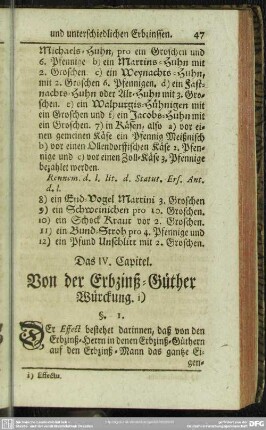 und unterschiedlichen Erbzinssen. 47
Michaels-Huhn, pro ein Groschen und
6. Pfennige b) ein Martins-Huhn mit
2. Groschen c) ein Weynachts-Huhn,
mit 2. Groschen 6. Pfennigen, d) ein Fast-
nachts-Huhn oder Alt-Huhn mit 3. Gro-
schen. e) ein Walpurgis-Hühnigen mit
ein Groschen und f) ein Jacobs-Huhn mit
ein Groschen. 7) in Käsen, also a) vor ei-
nen gemeinen Käse ein Pfennig Meißnisch
b) vor einen Ollendorffischen Käse 2. Pfen-
nige und c) vor einen Zoll-Käse 3. Pfennige
bezahlet werden.
Rennem. d. l. lit. d. Statut. Erf. Ant.
d. l.
8) ein End-Vogel Martini 3. Groschen
9) ein Schweinichen pro 10. Groschen.
10) ein Schock Kraut vor 2. Groschen.
11) ein Bund-Stroh pro 4. Pfennige und
12) ein Pfund Unschlitt mit 2. Groschen.
Das IV. Capitel.
Von der Erbzinß-Güther
Würckung. i)
§. 1.
Der Effect bestehet darinnen, daß von den
Erbzinß-Herrn in denen Erbzinß-Güthern
auf den Erbzinß-Mann das gantze Ei-
gen-
i) Effectu.